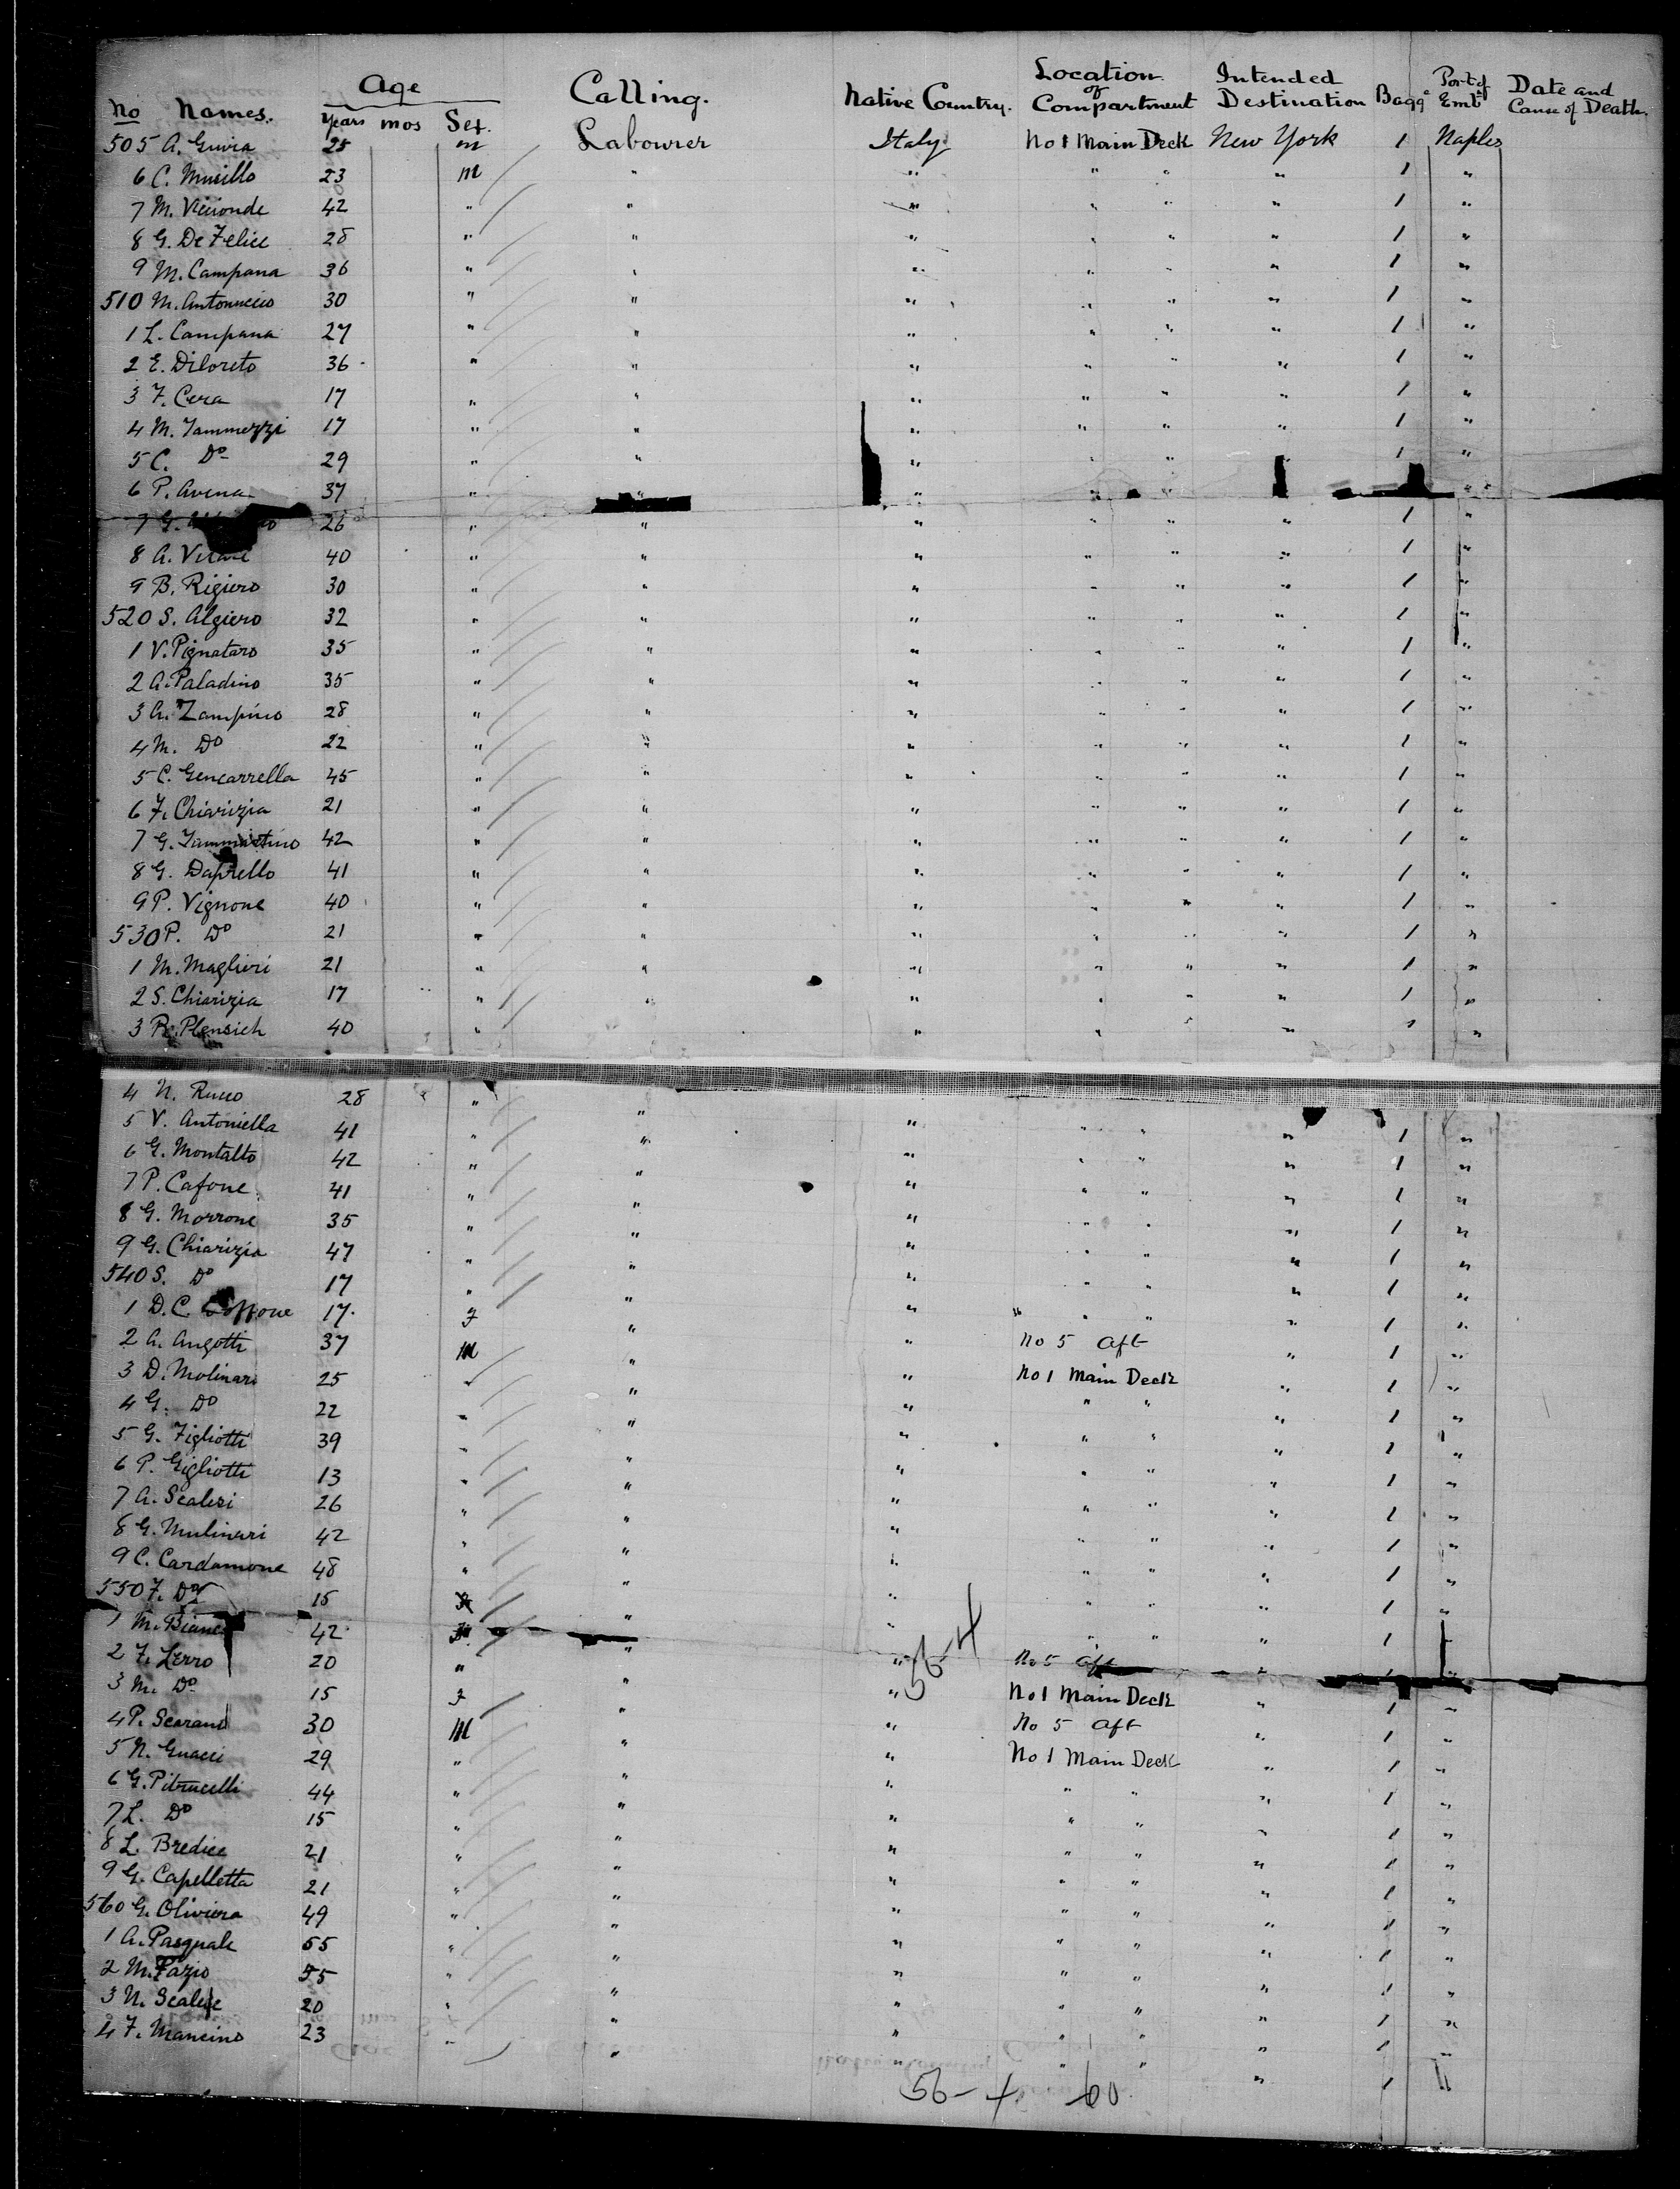 No Names. Age Years mos Sex. Calling. Native Country. Location of Compartment Intended Destination Bagge Port of Embt Date and Cause of Death.
505 A. 25 m Labourer Italy No 1 Main Deck New York 1 Naples
6 C. Musillo 23 m " " " " " 1 "
7 M. 42 " " " " " " 1 "
8 G. De Felice 28 " " " " " " 1 "
9 M. Campana 36 " " " " " " 1 "
510 M. Antonuccio 30 " " " " " " 1 "
1 L. Campana 27 " " " " " " 1 "
2 E. Diloreto 36 " " " " " " 1 "
3 F. Cera 17 " " " " " " 1 "
4 M. Iammezzi 17 " " " " " " 1 "
5 C. Do 29 " " " " " " 1 "
6 P. Avena 37 " " " " " "
7 G. 26 " " " " " " 1 "
8 A. 40 " " " " " " 1 "
9 B. Rigiero 30 " " " " " " 1 "
520 S. Algiero 32 " " " " " " 1 "
1 V. Pignataro 35 " " " " " " 1 "
2 A. Paladino 35 " " " " " " 1 "
3 A. Zampino 28 " " " " " " 1 "
4 M. Do 22 " " " " " " 1 "
5 C. Gencarrella 45 " " " " " " 1 "
6 F. Chiarizia 21 " " " " " " 1 "
7 G. 42 " " " " " " 1 "
8 G. Daprello 41 " " " " " " 1 "
9 P. Vignone 40 " " " " " " 1 "
530 P. Do 21 " " " " " " 1 "
1 M. Maglieri 21 " " " " " " 1 "
2 S. Chiarizia 17 " " " " " " 1 "
3 Plensich 40 " " " " " " 1 "
4 N. Rucco 28 " " "
5 V. Antoniella 41 " " " " " " 1 "
6 G. Montalto 42 " " " " " " 1 "
7 P. Cafone 41 " " " " " " 1 "
8 G. Morrone 35 " " " " " " 1 "
9 G. Chiarizia 47 " " " " " " 1 "
540 S. Do 17 " " " " " " 1 "
1 D. C. 17 f " " " " " 1 "
2 A. Angotti 37 m " " No 5 Aft " 1 "
3 D. Molinari 25 " " " No 1 Main Deck " 1 "
4 G. Do 22 " " " " " " 1 "
5 G. Figliotti 39 " " " " " " 1 "
6 P. Gigliotti 13 " " " " " " 1 "
7 A. Scalesi 26 " " " " " " 1 "
8 G. Mulinari 42 " " " " " " 1 "
9 C. Cardamone 48 " " " " " " 1 "
550 F. Do 15 " " " " " 1 "
1 M. 42 " " " " " 1
2 F. Lerro 20 " " " No 5 Aft "
3 M. Do 15 f " " No 1 Main Deck " 1 "
4 P. 30 m " " No 5 Aft " 1 "
5 N. Guacci 29 " " " No 1 Main Deck " 1 "
6 G. Pitrucelli 44 " " " " " " 1 "
7 L. Do 15 " " " " " " 1 "
8 L. Bredice 21 " " " " " " 1 "
9 G. Capelletta 21 " " " " " " 1 "
560 G. Oliviera 49 " " " " " " 1 "
1 A. Pasquale 55 " " " " " " 1 "
2 M. Fazio 55 " " " " " " 1 "
3 N. 20 " " " " " " 1 "
4 F. Mancino 23 " " " " " " 1 "
56-4
56-4 60